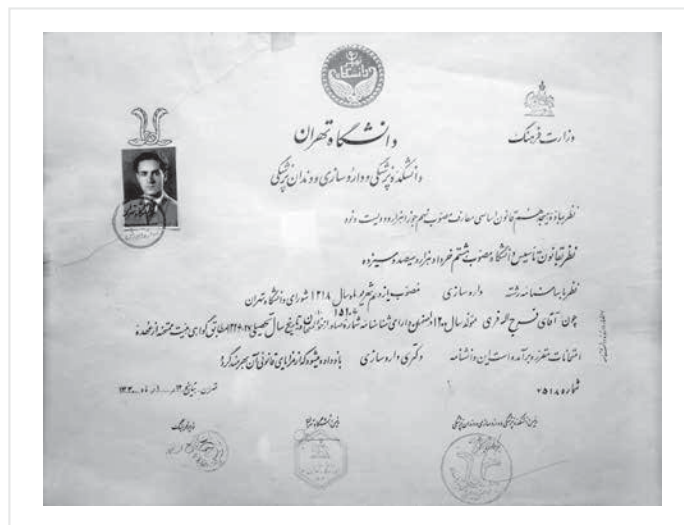 دانشگاه
وزارت فرهنگ
دانشگاه تهران
دانشکده پزشکی و داروسازی و دندان پزشکی
نظر بماده هیجدهم قانون اساسی معارف مصوب نهم جوزا هزار و دویست و نود
نظر بقانون تاسیس دانشگاه مصوب هشتم خرداد هزار و سیصد و سیزده
نظر باساسنامه رشته داروسازی مصوب یازدهم شهریور ماه سال ۱۳۱۸ شورای دانشگاه تهران
چون آقای فرج اله فری متولد سال ۱۳۰۰ دارای شناسنامه شماره ۱۵۱۰۴ صادره از سال تحصیلی ۲۷-۱۳۲۶ مطابق گواهی هیئت ممتحنه از عهده
امتحانات مقرره برآمده است این دانشنامه دکتری داروسازی باو داده میشود که از مزایای قانونی آن بهره مند گردد
شماره ۲۵۱۸
تهران بتاریخ ماه ۱۳۳۰
وزیر فرهنگ
رئیس دانشگاه تهران
رئیس دانشکده پزشکی و داروسازی و دندان پزشکی